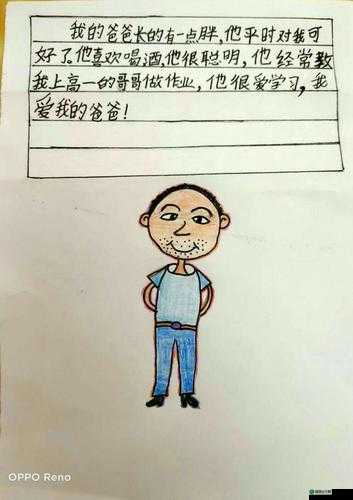 我的爸爸长的有一点胖，他平时对我可
好了。他喜欢喝酒。他很聪明，他经常教
我上高一的哥哥做作业，他很爱学习，我
爱我的爸爸！
OPPO Reno